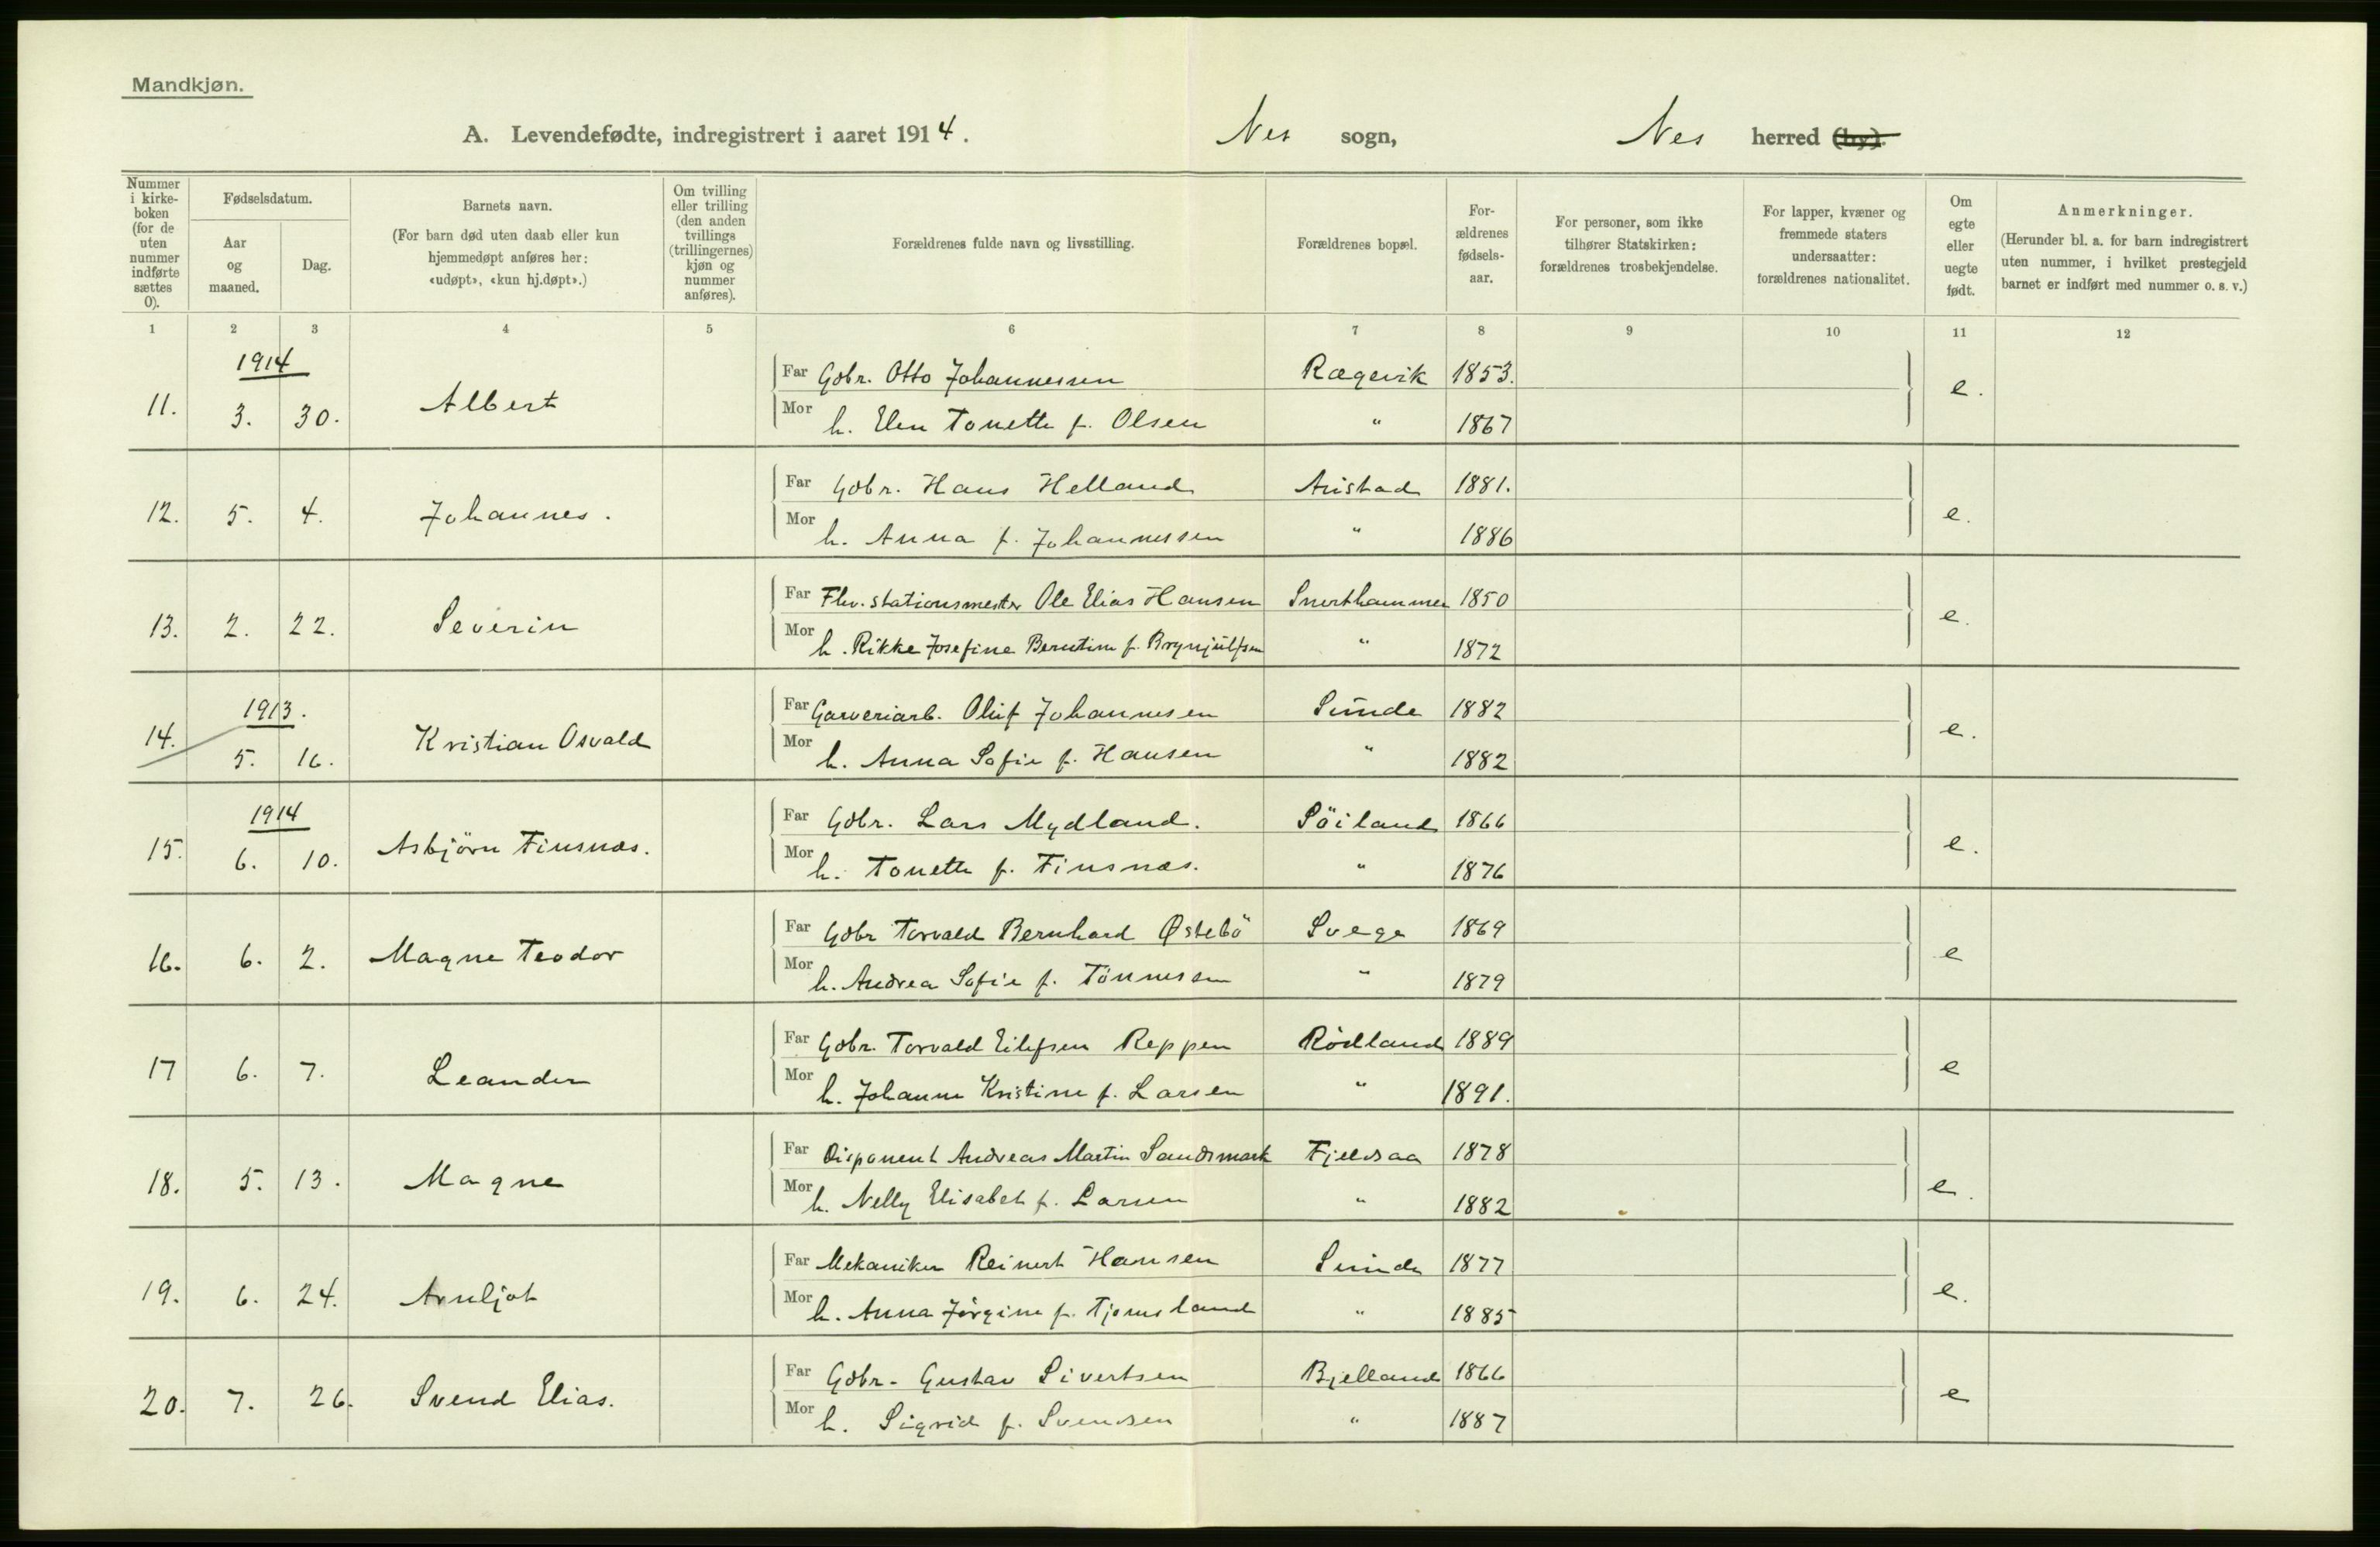 Mandkjøn.
A. Levendefødte, indregistrert i aaret 1914. Nes sogn, Nes herred (by).
Nummer i kirke-boken (for de uten nummer indførte sættes 0).
Fødselsdatum.
Aar og maaned.
Dag.
Barnets navn.
(For barn død uten daab eller kun hjemmedøpt anføres her: «udøpt», «kun hj.døpt».)
Om tvilling eller trilling (den anden tvillings (trillingernes) kjøn og nummer anføres).
Forældrenes fulde navn og livsstilling.
Forældrenes bopæl.
For-ældrenes fødsels-aar.
For personer, som ikke tilhører Statskirken: forældrenes trosbekjendelse.
For lapper, kvæner og fremmede staters undersaatter: forældrenes nationalitet.
Om egte eller uegte født.
Anmerkninger.
(Herunder bl. a. for barn indregistrert uten nummer, i hvilket prestegjeld barnet er indført med nummer o. s. v.)
1 2 3 4 5 6 7 8 9 10 11 12
1914
11. 3. 30. Albert Far Gdbr. Otto Johannessen Rægevik 1853. e.
Mor h. Elen Tonette f. Olsen " 1867
12. 5. 4. Johannes. Far Gdbr. Hans Helland Austad 1881. e.
Mor h. Anna f. Johannessen " 1886
13. 2. 22. Severin Far Fhv. stationsmester Ole Elias Hansen 1850 e.
Mor h. Rikke Josefine Berntine f. Brynjülfsen " 1872
1913.
14. 5. 16. Kristian Osvald Far Garveriarb. Oluf Johannesen Sunde 1882 e.
Mor h. Anna Sofie f. Hansen " 1882
1914
15. 6. 10. Asbjörn Finsnæs. Far Gdbr. Lars Mydland. Söiland 1866 e.
Mor h. Tonette f. Finsnæs. " 1876
16. 6. 2. Magne Teodor Far Gdbr Torvald Bernhard Østebö Svege 1869 e
Mor h. Andrea Sofie f. Tönnessen " 1879
17 6. 7. Leander Far Gdbr. Torvald Eilefsen Reppen Rödland 1889 e
Mor h. Johanne Kristine f. Larsen " 1891.
18. 5. 13. Magne Far Disponent Andreas Martin Sandsmark Fjeldsaa 1878 e.
Mor h. Nelly Elisabet f. Larsen " 1882
19. 6. 24. Arnljot Far Mekaniker Reinert Hansen Sunde 1877 e.
Mor h. Anna Jörgine f. Tjomsland " 1885
20. 7. 26. Svend Elias. Far Gdbr. Gustav Sivertsen Bjelland 1866 e
Mor h. Sigrid f. Svendsen " 1887